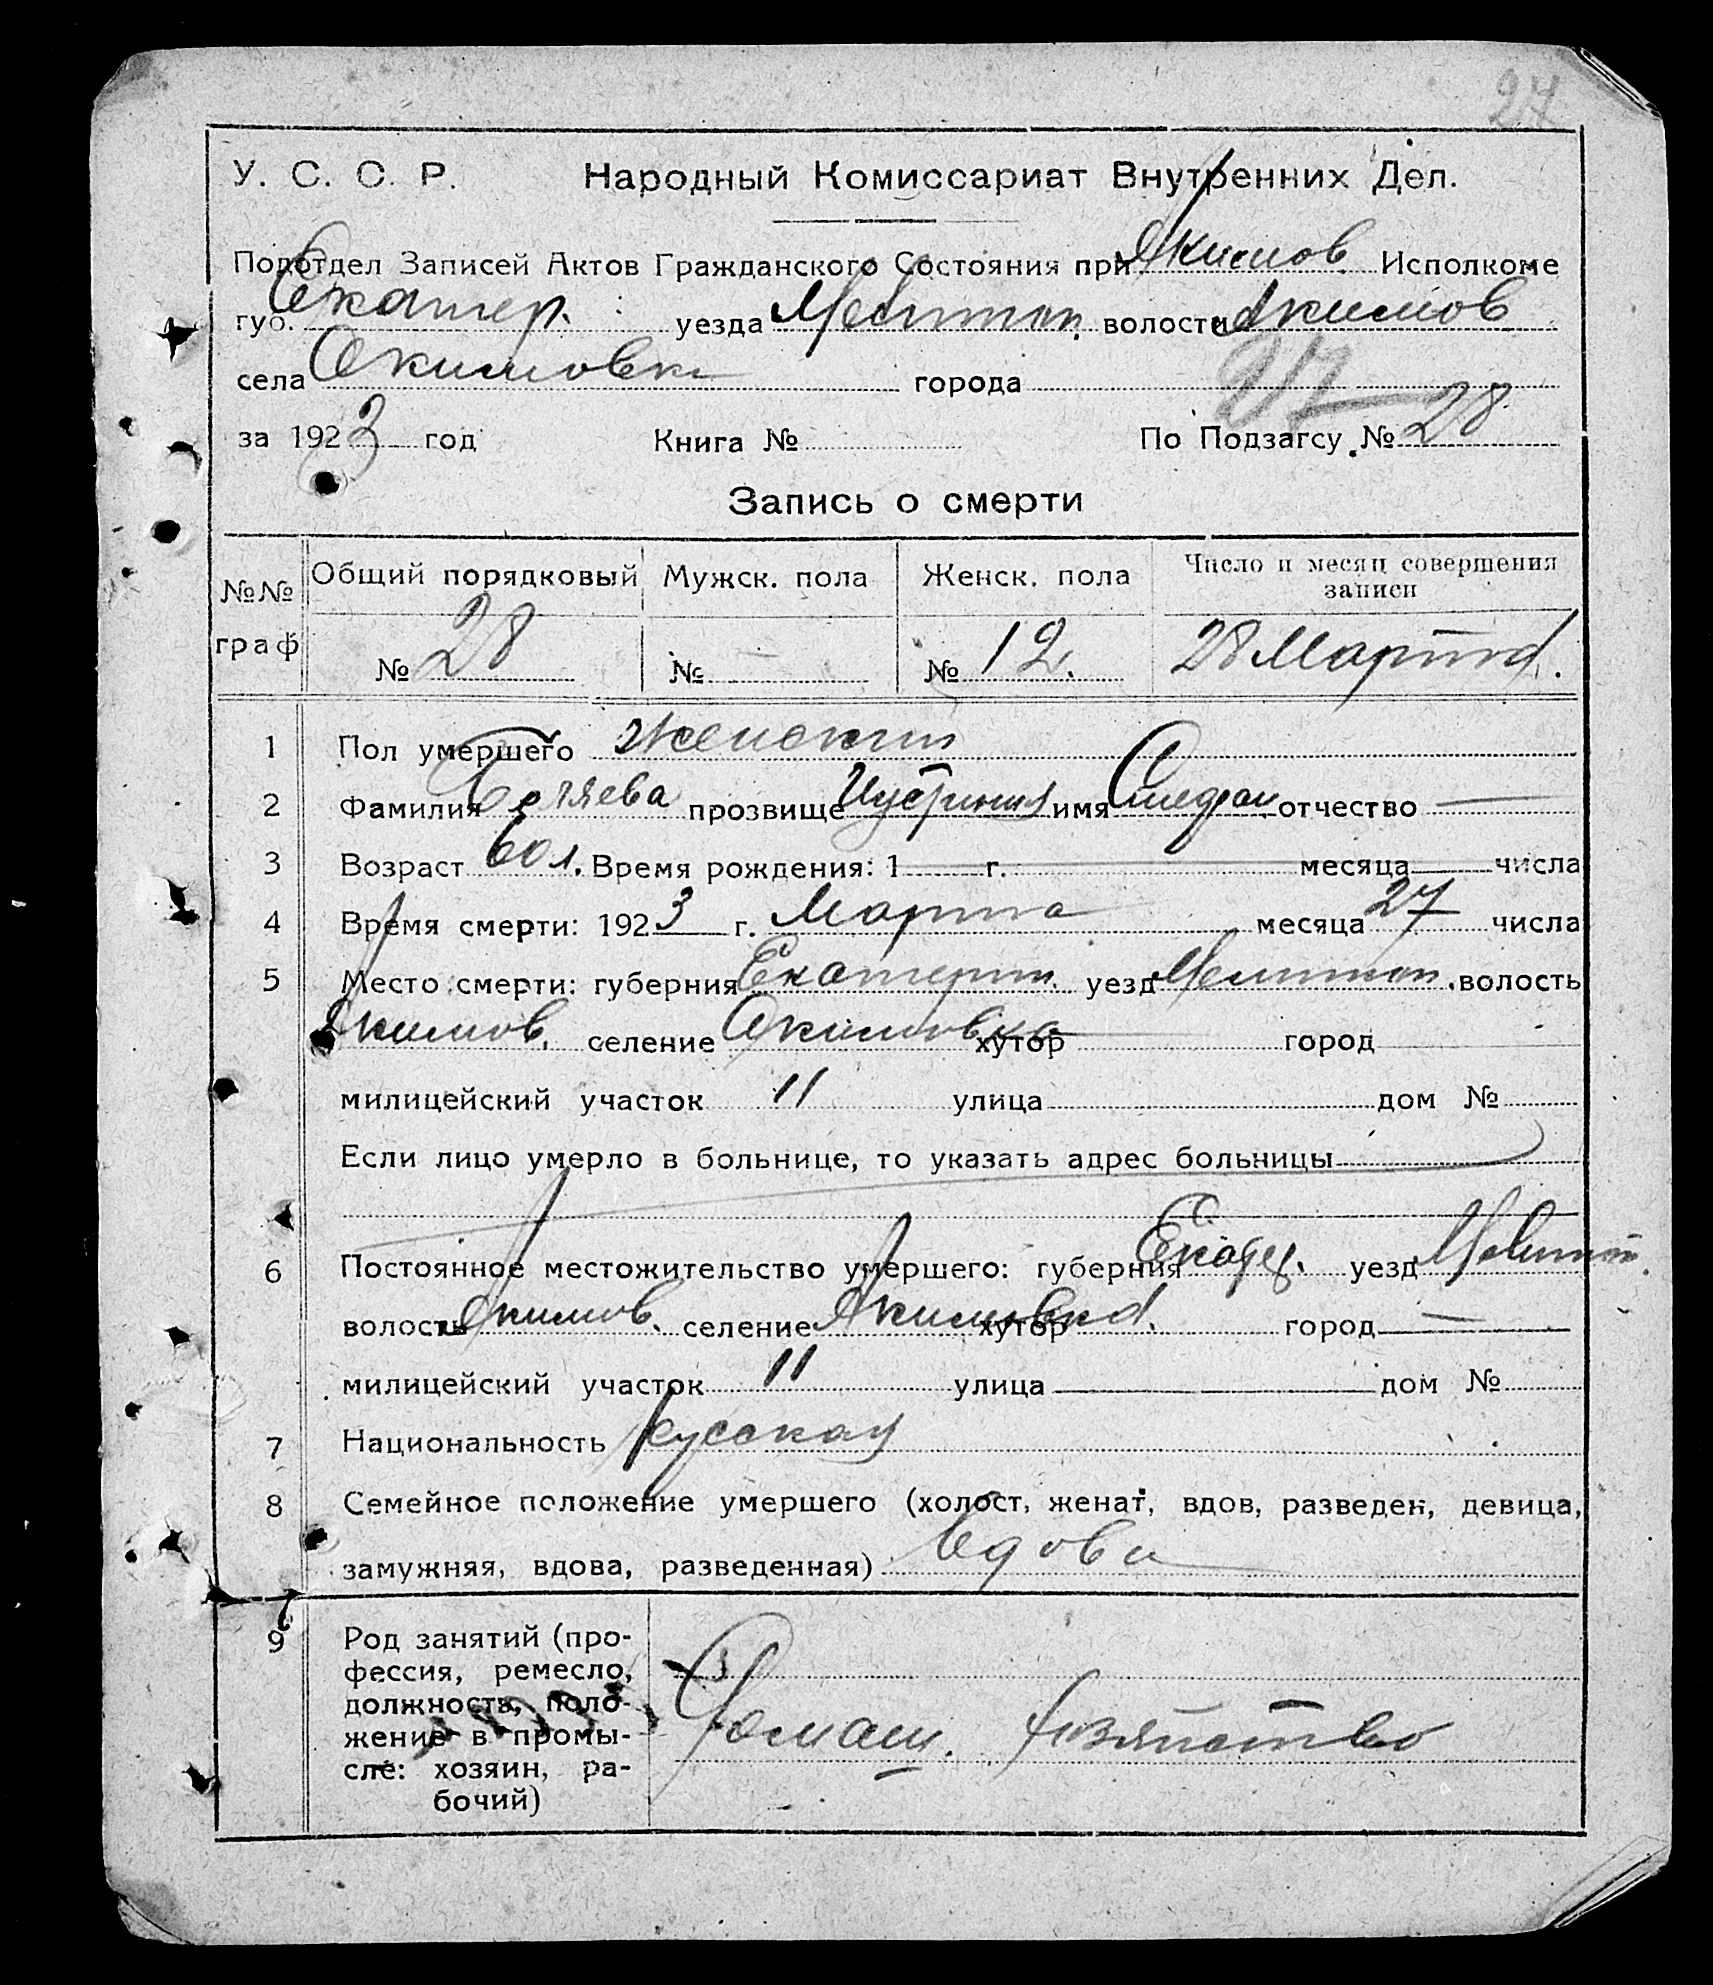 27
У. С. С. Р. Народный Комиссариат Внутренних Дел.
Подотдел Записей Актов Гражданского Состояния при Якимов. Исполкоме
губ. Екатер. уезда Мелитоп. волости Акимов
села Акимовки города
27
за 1923 год Книга № По Подзагсу № 28
Запись о смерти
№№ граф Общий порядковый Мужск. пола Женск. пола Число и месяц совершения записи
№ 28 № — № 12. 28 Марта.
1 Пол умершего женский
2 Фамилия прозвище Иустиния имя отчество —
3 Возраст 60 л. Время рождения: 1 г. месяца числа
4 Время смерти: 1923 г. Марта месяца 27 числа
5 Место смерти: губерния Екатерин. уезд Мелитоп. волость
Акимов. селение Акимовка хутор город
милицейский участок 11 улица дом №
Если лицо умерло в больнице, то указать адрес больницы
6 Постоянное местожительство умершего: губерния Екатер. уезд Мелитоп.
волость Акимов. селение Акимовка. хутор город —
милицейский участок 11 улица дом №
7 Национальность русская
8 Семейное положение умершего (холост, женат, вдов, разведен, девица,
замужняя, вдова, разведенная) вдова
9 Род занятий (про-
фессия, ремесло,
должность, поло-
жение в промы-
сле: хозяин, ра-
бочий)
Домаш. хозяйство